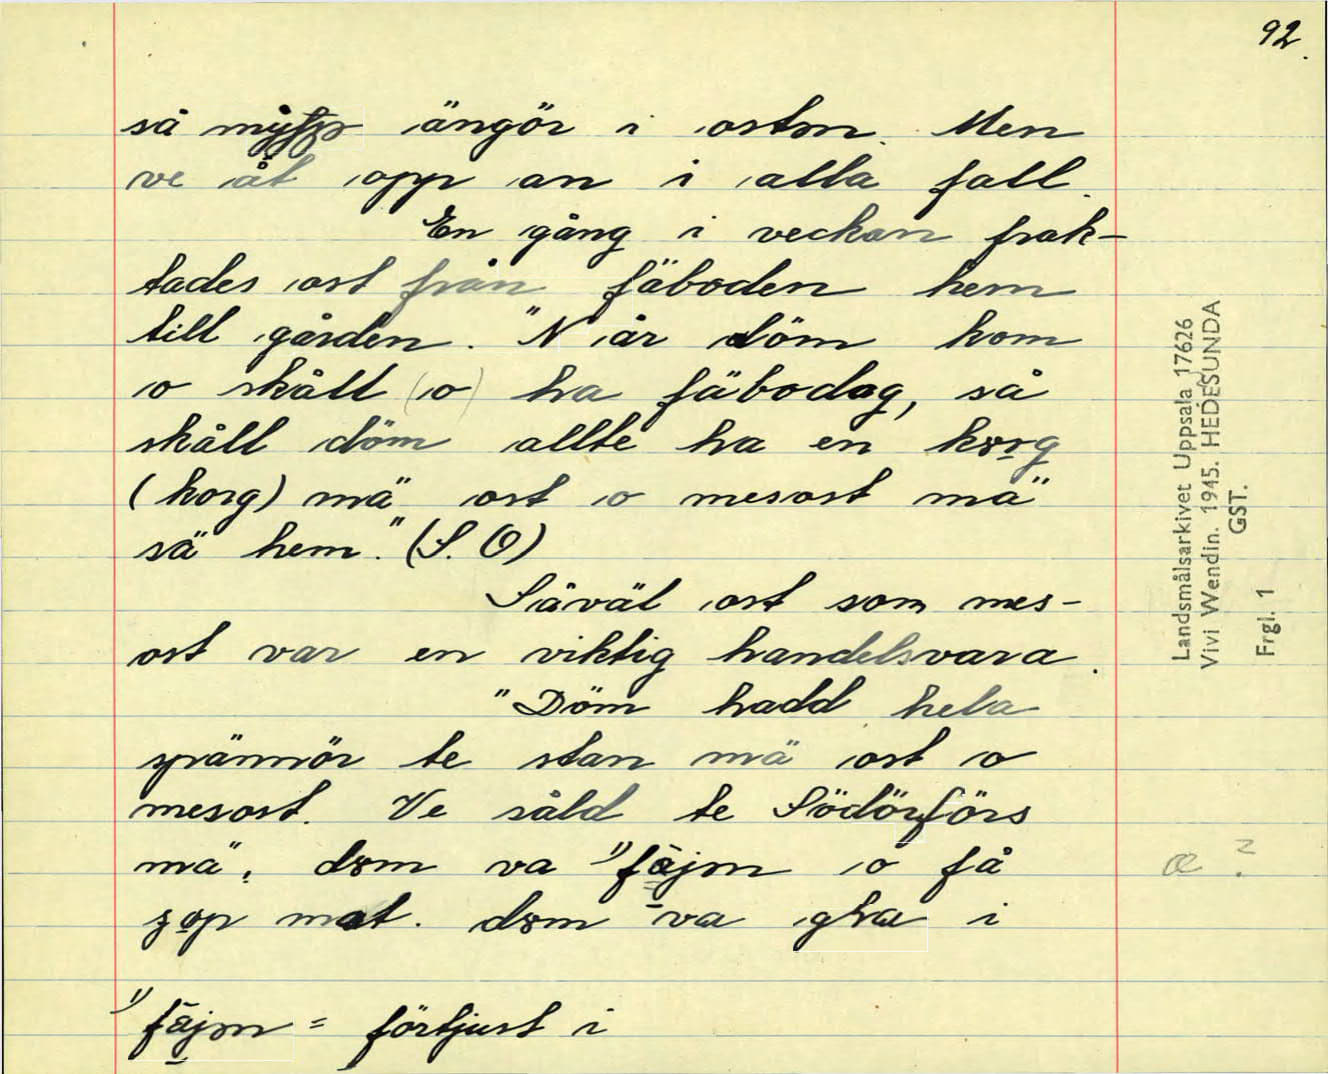 92.
så ängör i ostn. Men
ve åt opp an i alla fall.
En gång i veckan frak-
tades ost från fäboden hem
till gården. "N är döm kom
o skåll (o) ha fäbodag, så
skåll döm allte ha en korg
(korg) mä ost o mesost mä
sä hem." (S. O)
Såväl ost som mes-
ost var en viktig handelsvara.
"Döm hadd hela
spännör te stan mä ost o
mesost. Ve såld te Södörförs
mä, dom va 1) fäjm o få
mat. dom va i
1) fäjm = förtjust i
Landsmålsarkivet Uppsala 17626
Vivi Wendin. 1945. HEDESUNDA
GST.
Frgl. 1
æ ?